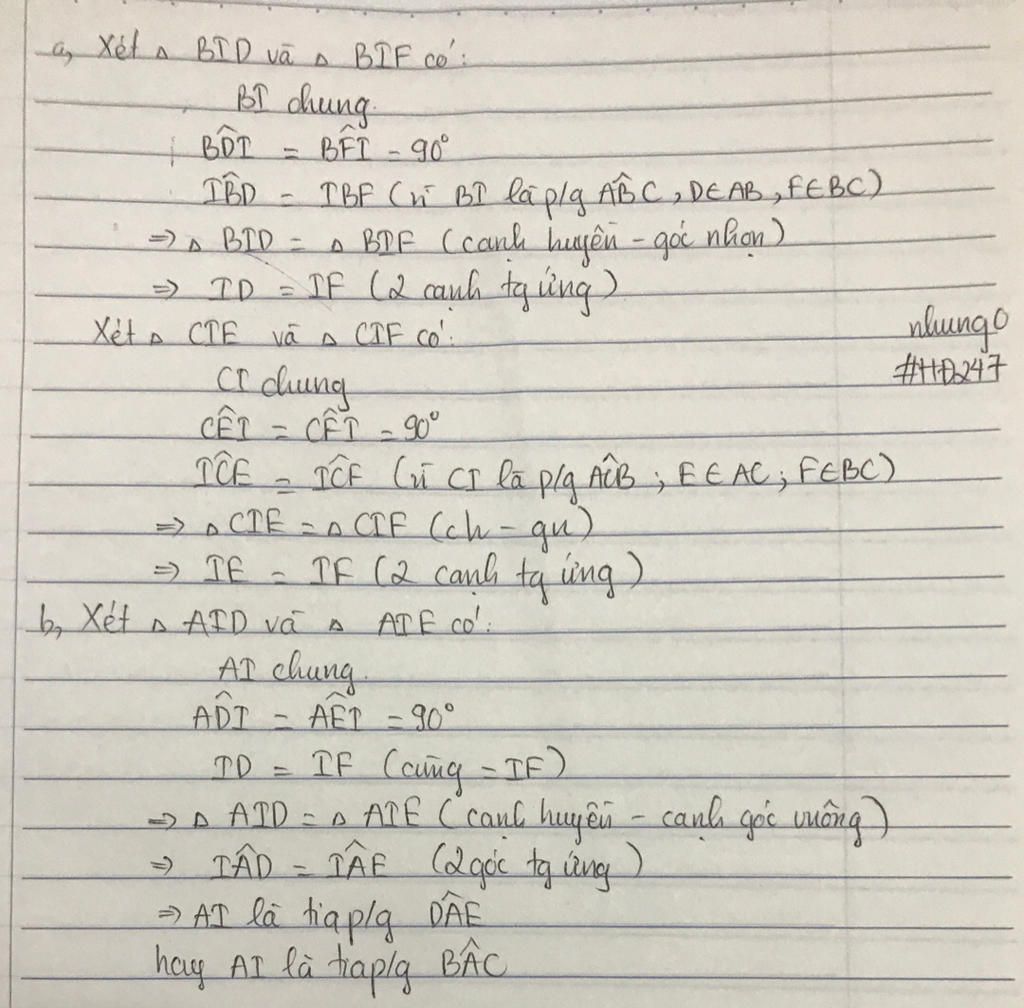 a, Xét △ BID và △ BIF có:
BI chung.
BD̂I = BF̂I = 90°
IB̂D = IBF (vì BI là p/g AB̂C, D∈AB, F∈BC)
⇒ △ BID = △ BIF (cạnh huyền - góc nhọn)
⇒ ID = IF (2 cạnh tg ứng)
Xét △ CIE và △ CIF có:
nhung0
#HĐ247
CI chung
CÊI = CF̂I = 90°
IĈE = IĈF (vì CI là p/g AĈB; E∈AC; F∈BC)
⇒ △CIE = △CIF (ch - gn)
⇒ IE = IF (2 cạnh tg ứng)
b, Xét △ AID và △ AIE có:
AI chung.
AD̂I = AÊI = 90°
ID = IE (cùng = IF)
⇒ △ AID = △ AIE (cạnh huyền - cạnh góc vuông)
⇒ IÂD = IÂE (2 góc tg ứng)
⇒ AI là tia p/g DÂE
hay AI là tia p/g BÂC